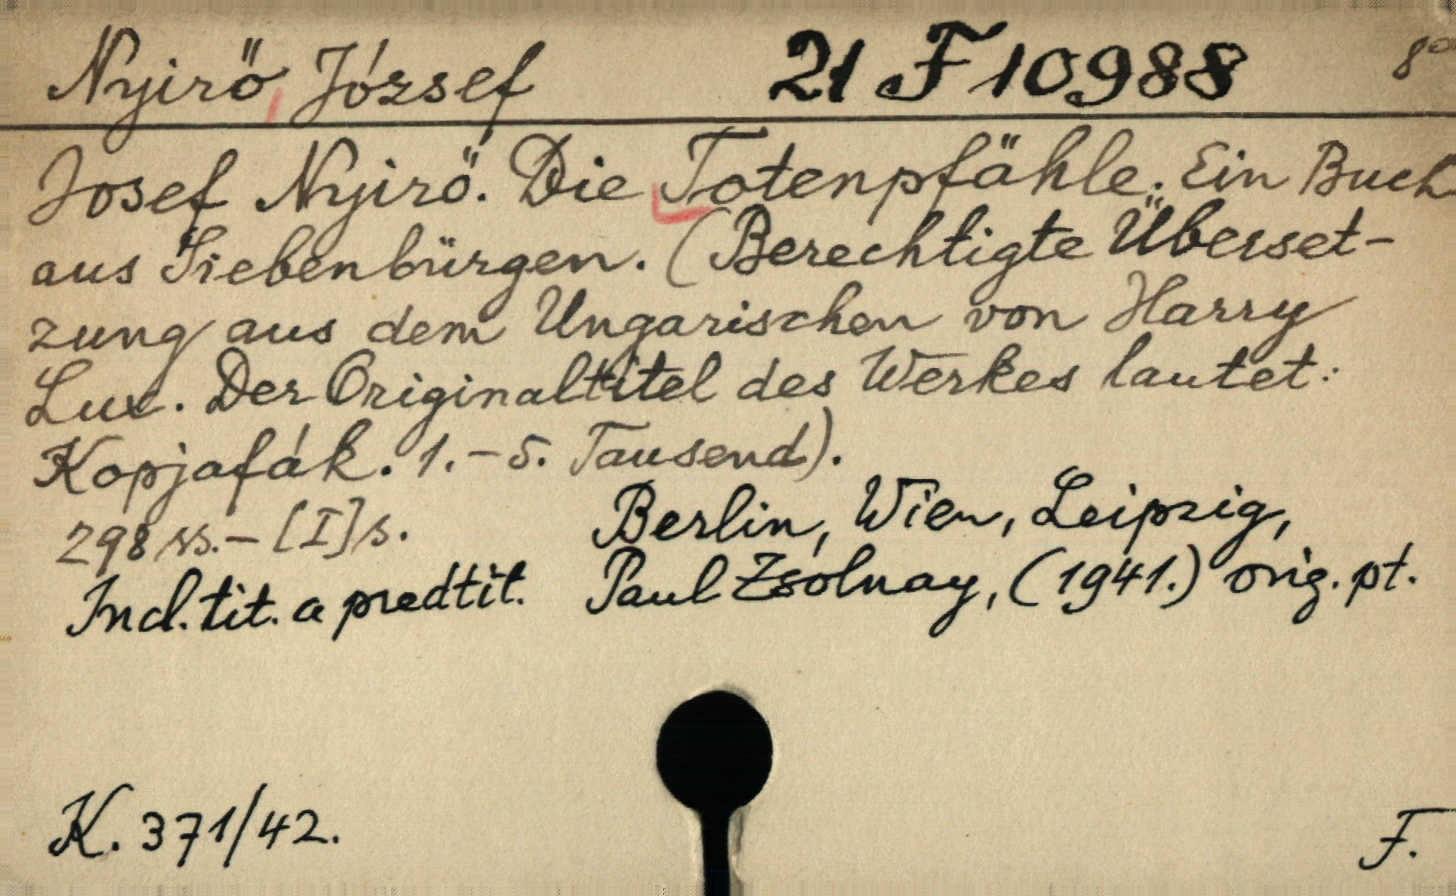 Nyirő, József 21 F 10988 8°
Josef Nyirö. Die Totenpfähle. Ein Buch
aus Siebenbürgen. (Berechtigte Überset-
zung aus dem Ungarischen von Harry
Lux. Der Originaltitel des Werkes lautet:
Kopjafák. 1.-5. Tausend).
298 ss.- [I]s. Berlin, Wien, Leipzig,
Ind. tit. a predtit. Paul Zsolnay, (1941.) orig. pt.
K. 371/42. F.